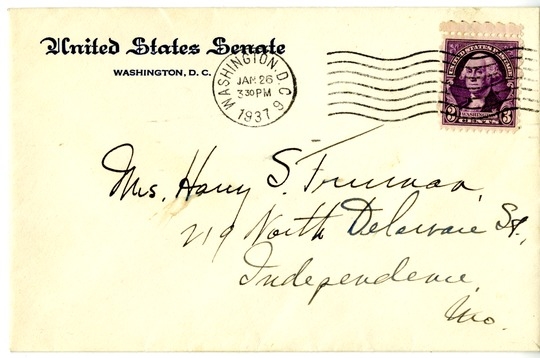 United States Senate
WASHINGTON, D. C.
WASHINGTON, D.C.
JAN 26
3 30 PM
1937
UNITED STATES POSTAGE
WASHINGTON
3 CENTS 3
Mrs. Harry S. Truman,
219 North Delaware St.,
Independence,
Mo.